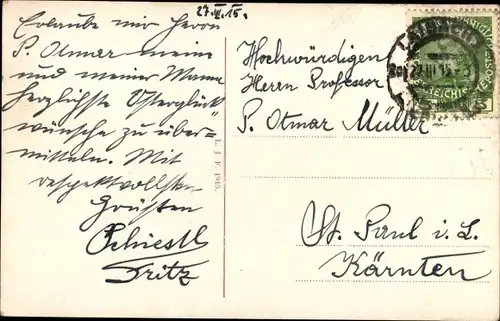 27. III. 15.
Erlaube mir Herrn
P. Otmar meine
und meiner Mama
herzlichste Osterglück
wünsche zu über=
mitteln. Mit
respektvollsten
Grüßen
Schiestl
Fritz
L. J. F. 1915.
Hochwürdigen
Herrn Professor
P. Otmar Müller
St. Paul i. L.
Kärnten
5
5